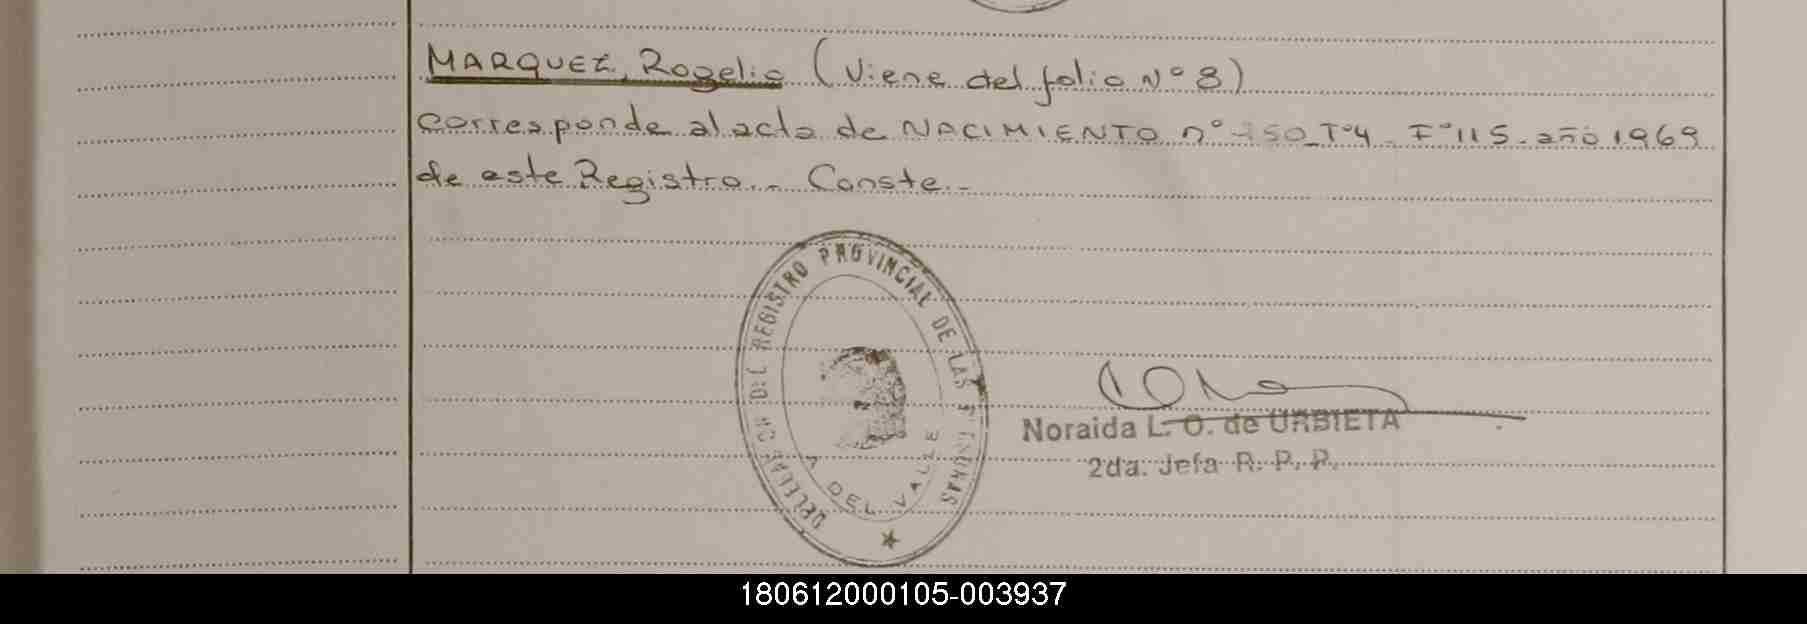 MARQUEZ, Rogelio (Viene del folio Nº 8)
corresponde al acta de NACIMIENTO nº 750 Tº4 - Fº115 - año 1969
de este Registro.- Conste.-
REGISTRO PROVINCIAL DE LAS
DEL VALLE
Noraida L. O. de URBIETA
2da. Jefa R. P. P.
180612000105-003937